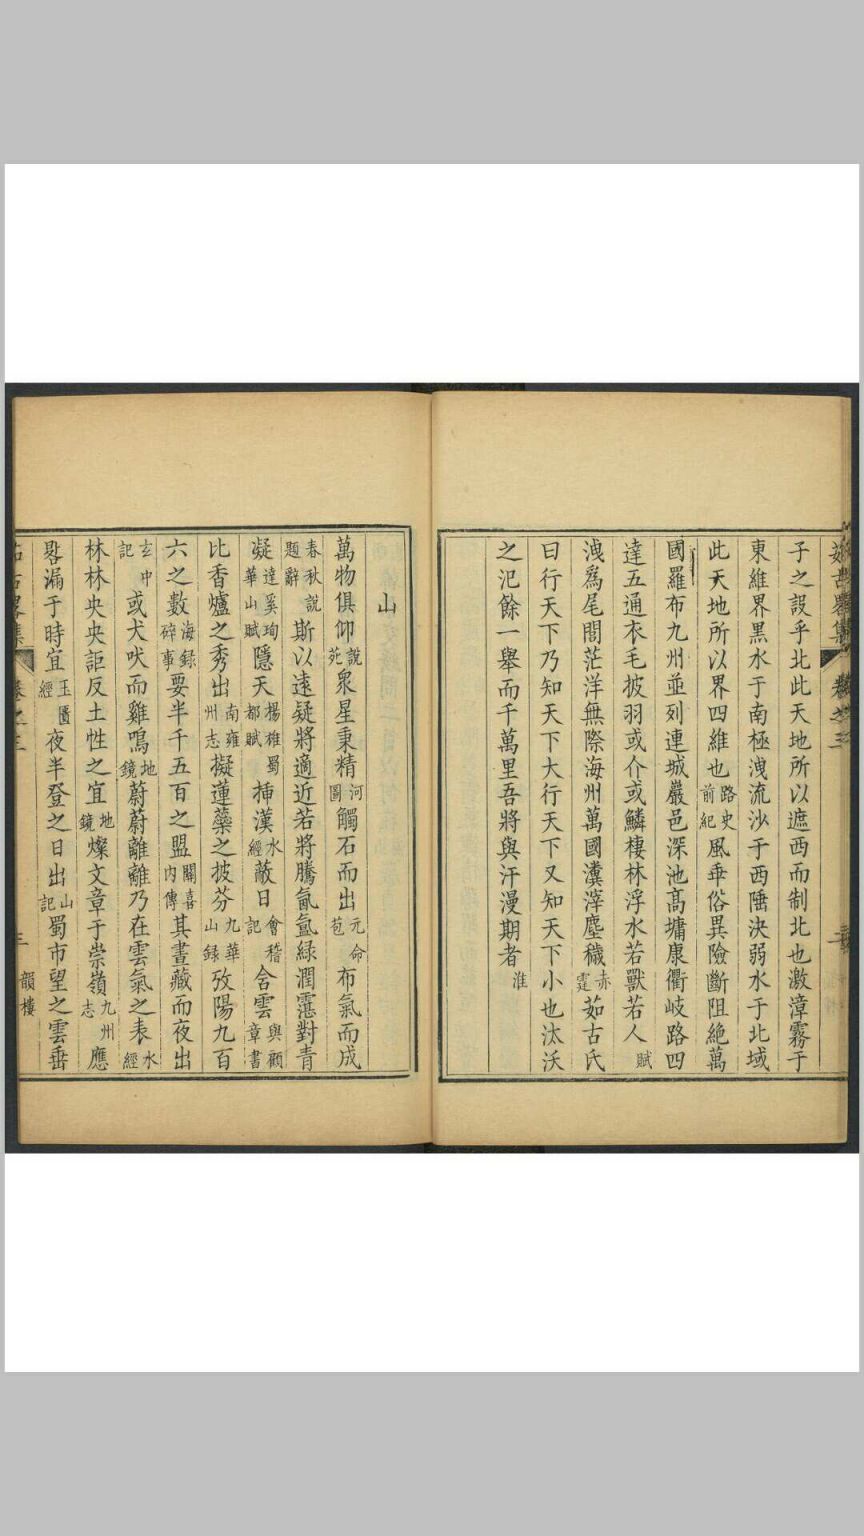 茹古畧集 卷之三
子之設乎北此天地所以遮西而制北也激漳霧于
東維界黑水于南極洩流沙于西陲決弱水于北域
此天地所以界四維也路史前紀風乖俗異險斷阻絶萬
國羅布九州並列連城巖邑深池高墉康衢岐路四
達五通衣毛披羽或介或鱗棲林浮水若獸若人賦
洩爲尾閭茫洋無際海州萬國瀵滓塵穢赤霆茹古氏
曰行天下乃知天下大行天下又知天下小也汰沃
之汜餘一舉而千萬里吾將與汗漫期者淮
山
萬物俱仰說苑衆星秉精河圖觸石而出元命苞布氣而成
春秋說題辭斯以遠疑將適近若將騰氤氲緑潤靄對青
凝達奚珣華山賦隱天揚雄蜀都賦挿漢水經蔽日會稽記含雲與顧章書
比香爐之秀出南雍州志擬蓮蘂之披芬九華山録攷陽九百
六之數海録碎事要半千五百之盟關喜内傳其晝藏而夜出
玄中記或犬吠而雞鳴地鏡蔚蔚離離乃在雲氣之表水經
林林央央詎反土性之宜地鏡燦文章于崇嶺九州志應
晷漏于時宜玉匱經夜半登之日出山記蜀市望之雲垂
茹古畧集 卷之三 三 韻樓